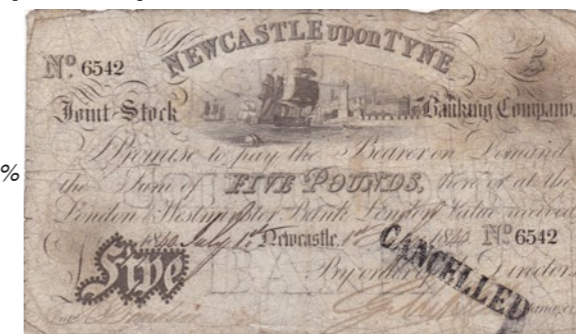 NEWCASTLE upon TYNE
Nº 6542
Joint Stock Banking Company
I Promise to pay the Bearer on Demand
%
the Sum of FIVE POUNDS, here or at the
London & Westminster Bank London Value received
1840 July 1st Newcastle, 1st July 1840 Nº 6542
Five
CANCELLED
By order of the Directors
Manager